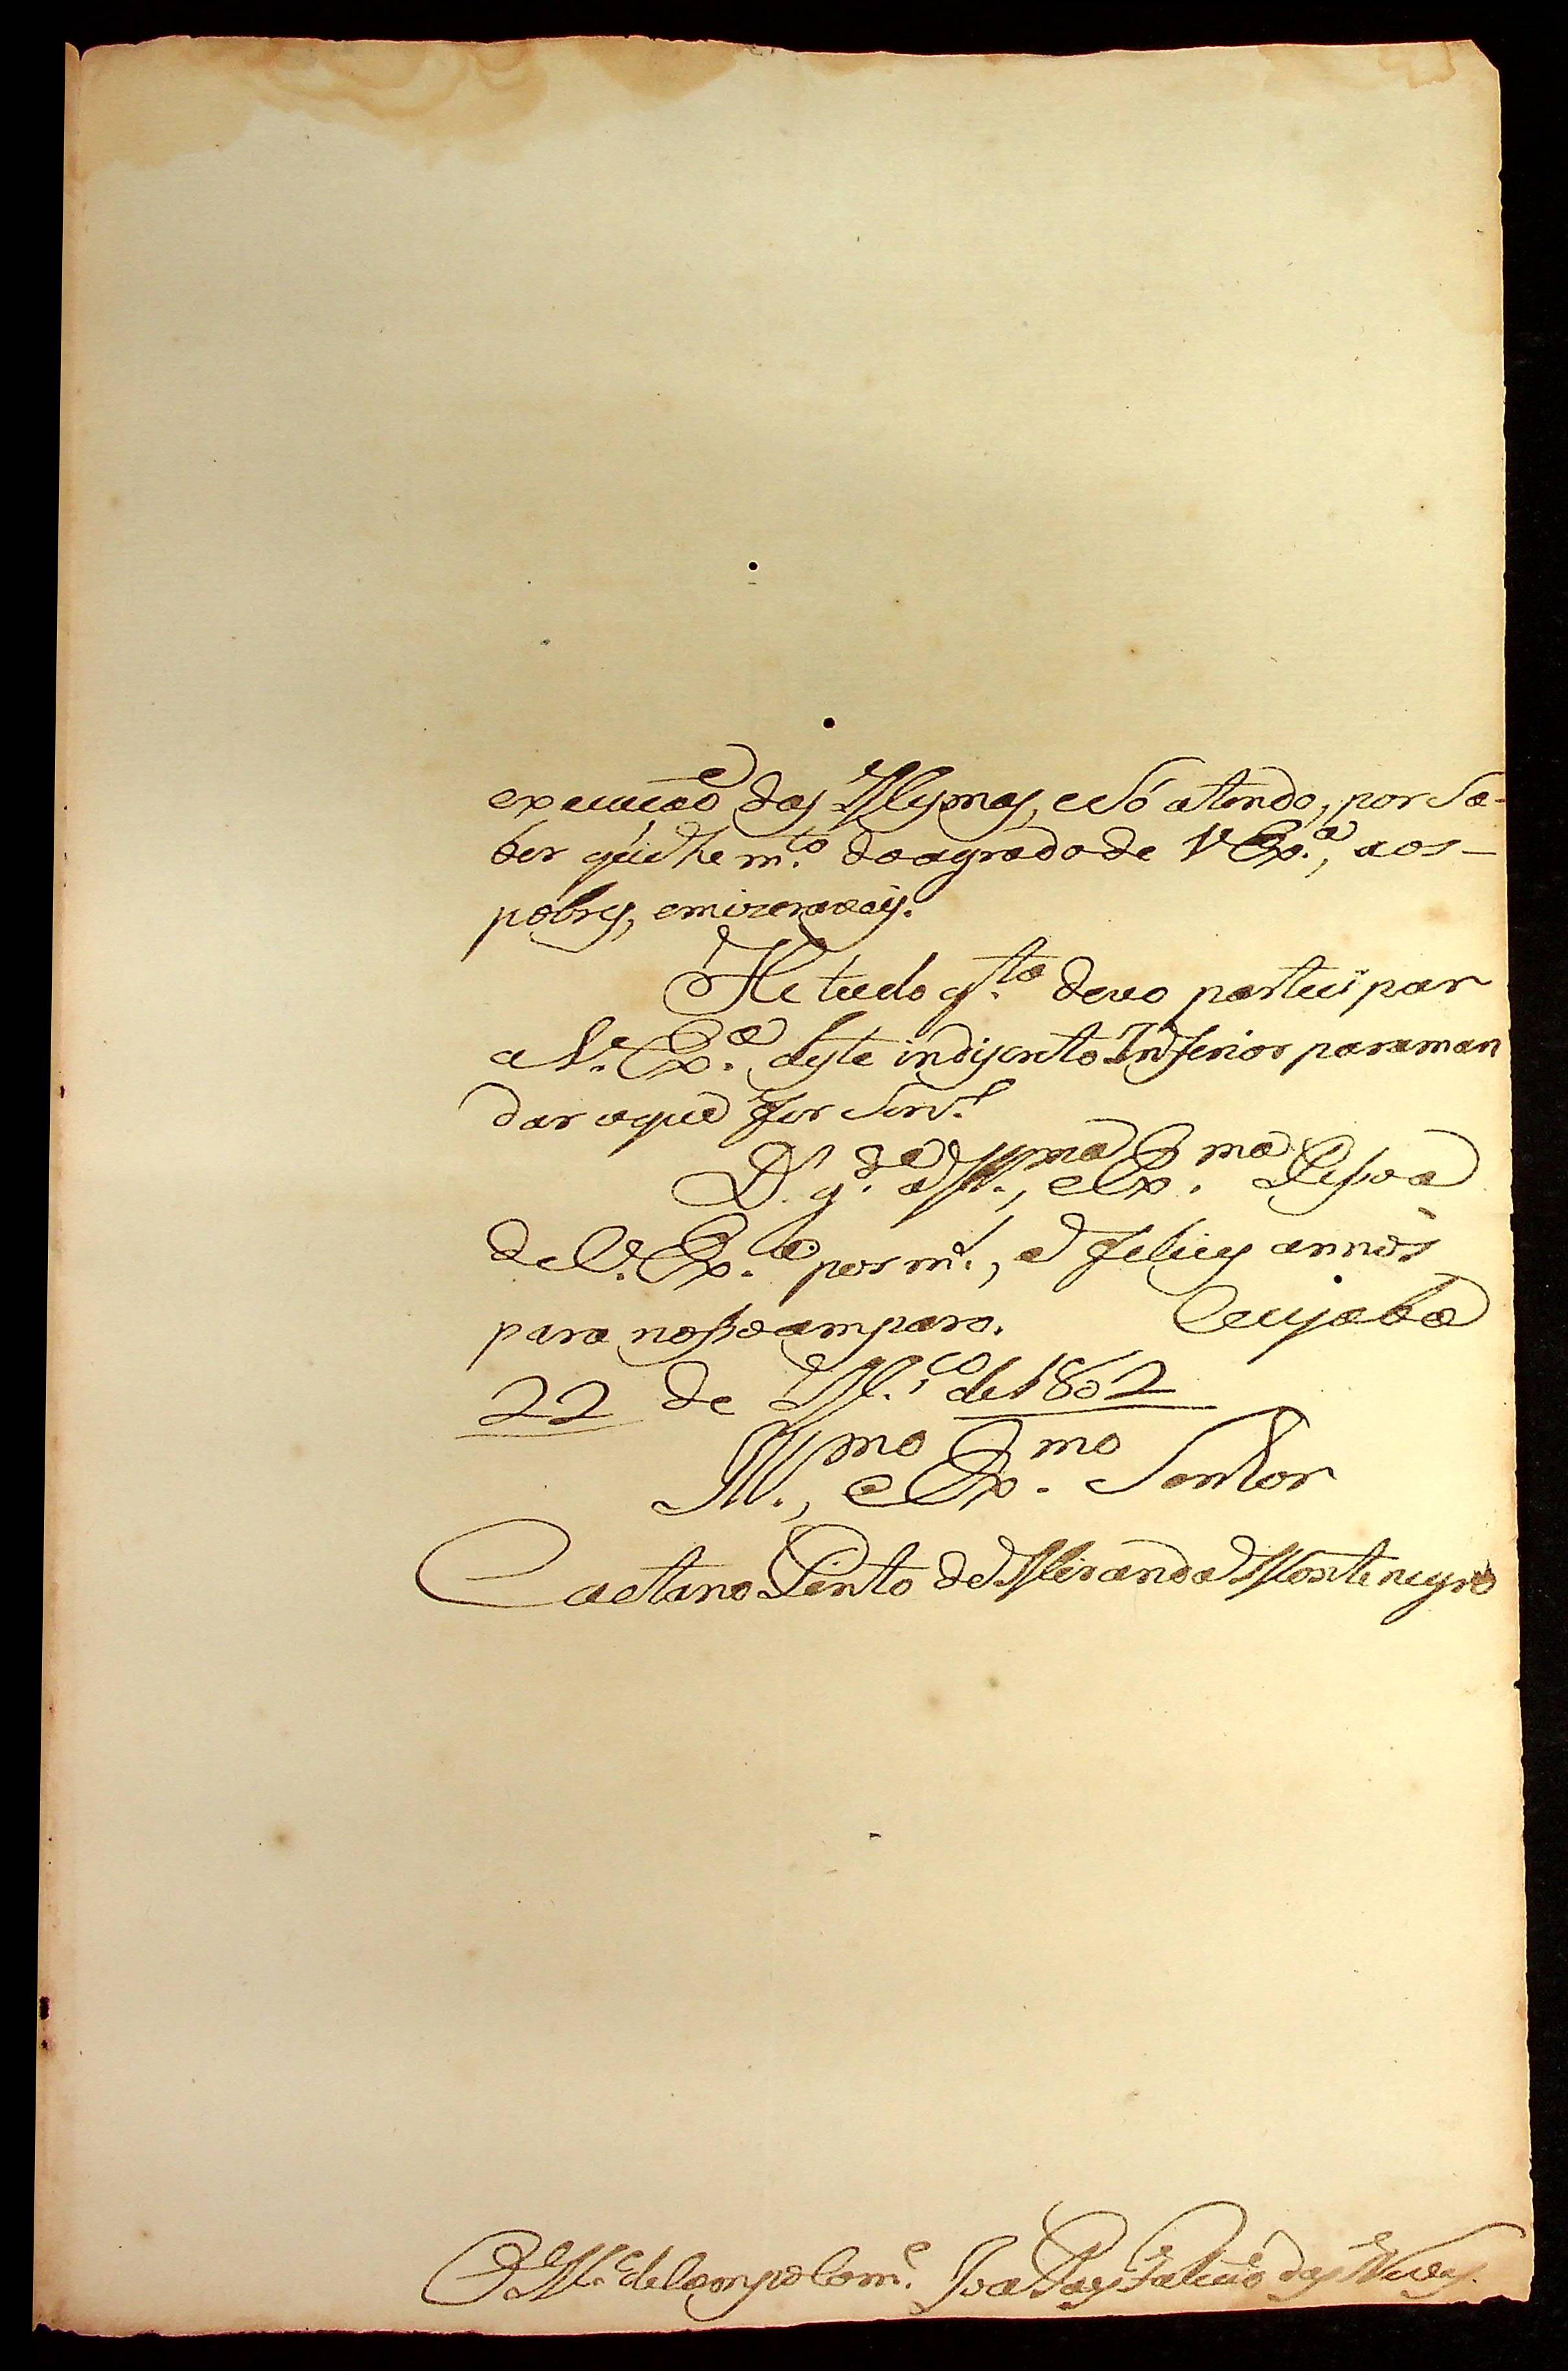 execução das Mesmas, e só atendo, por sa-
ber que he m.to do agrado de V Ex.a, aos -
pobres, e mizeraveis.
He tudo q.to devo partecipar
a V.a Ex.a deste indiscreto Inferior para man
dar o que for Serv.o
D.s g.de a Ill.ma, e Ex.ma Pessoa
de V.a Ex.a por m.s, e felices annos
para nosso amparo. Cuyabá
22 de M.ço de 1802
Ill.mo, e Ex.mo Senhor
Caetano Pinto de Miranda Montenegro
O M.e de Campo Com.e Joze Paes Falcão das Neves.